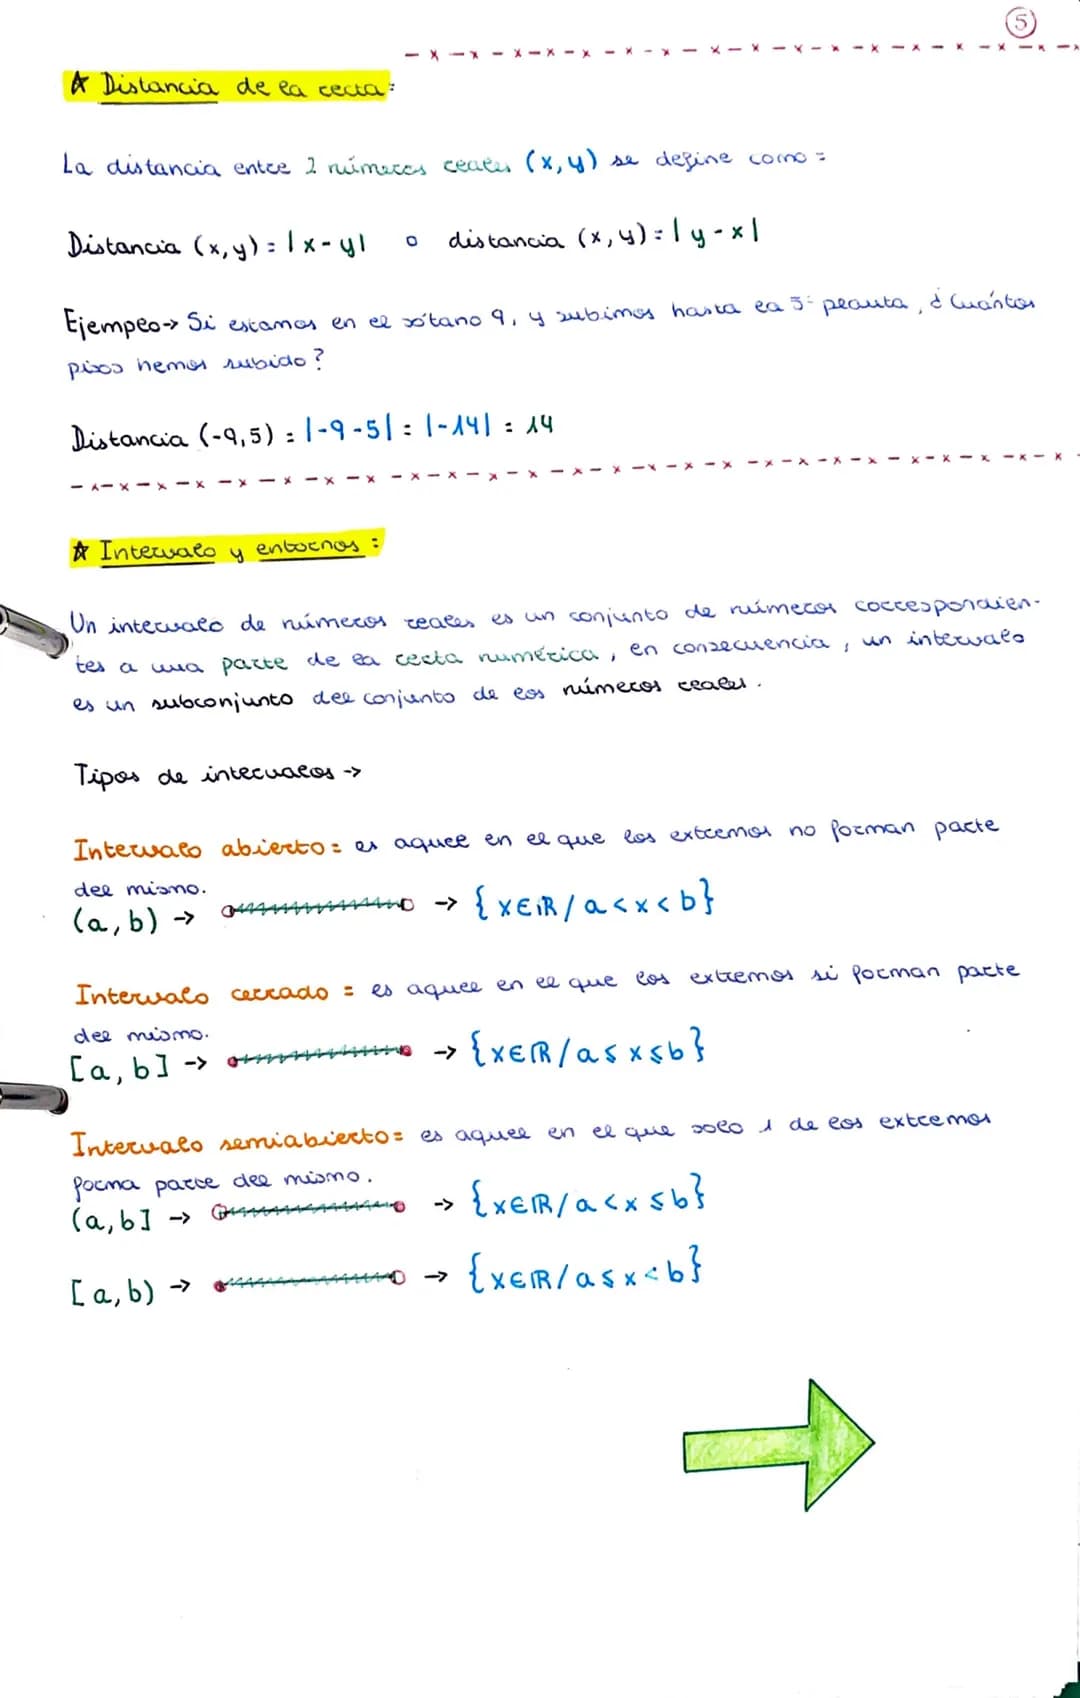 5
☆ Distancia de la recta:
La distancia entre 2 números reales (x,y) se define como:
Distancia (x,y) = |x-y| o distancia (x,y) = |y-x|
Ejemplo → Si estamos en el sótano 9, y subimos hasta la 5ª planta, ¿Cuántos
pisos hemos subido?
Distancia (-9,5) = |-9-5| = |-14| = 14
☆ Intervalo y entornos:
Un intervalo de números reales es un conjunto de números correspondien-
tes a una parte de la recta numérica, en consecuencia, un intervalo
es un subconjunto del conjunto de los números reales.
Tipos de intervalos →
Intervalo abierto: es aquel en el que los extremos no forman parte
del mismo.
(a,b) → → {x∈ℝ/a<x<b}
Intervalo cerrado = es aquel en el que los extremos si forman parte
del mismo.
[a,b] → → {x∈ℝ/a≤x≤b}
Intervalo semiabierto= es aquel en el que solo 1 de los extremos
forma parte del mismo.
(a,b] → → {x∈ℝ/a<x≤b}
[a,b) → → {x∈ℝ/a≤x<b}